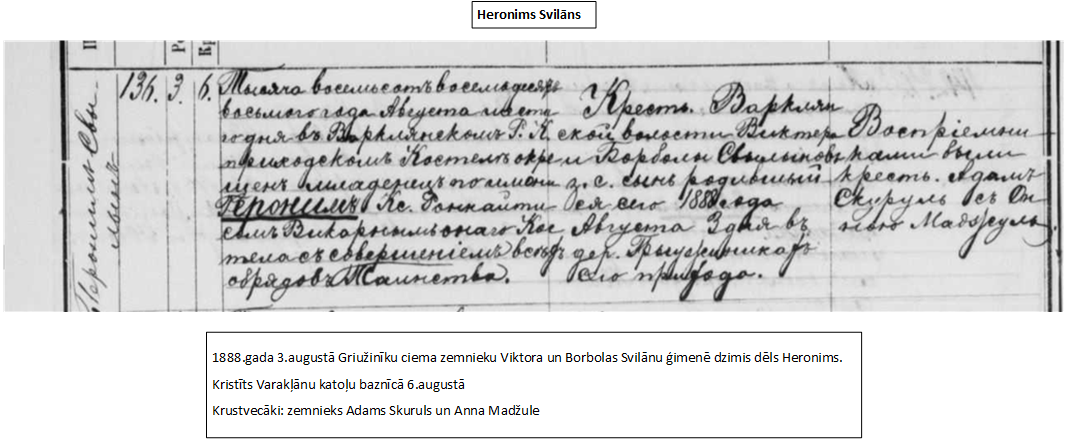 Heronims Svilāns
П
Ро
Кр
Геронимъ Свы-
лынъ
136. 3. 6.
Тысяча восемьсотъ восемьдесятъ
восьмого года Августа
дня въ Варклянскомъ Р. К.
приходскомъ Костелѣ окре
щенъ младенецъ по имени
Геронимъ Кс. Ронкайти
сомъ Викарнымъ онаго Кос
тела съ совершеніемъ всѣхъ
обрядовъ Таинства.
Крестъ. Варклян
ской волости Виктера
и Борболы Свылыновъ
з. с. сынъ родивший
ся сего 1888 года
Августа 3 дня въ
дер.
сего прихода.
Воспріемни
ками были
крестъ. Адамъ
Скуруль съ Он
ною Маджуль.
1888.gada 3.augustā Griužinīku ciema zemnieku Viktora un Borbolas Svilānu ģimenē dzimis dēls Heronims.
Kristīts Varakļānu katoļu baznīcā 6.augustā
Krustvecāki: zemnieks Adams Skuruls un Anna Madžule